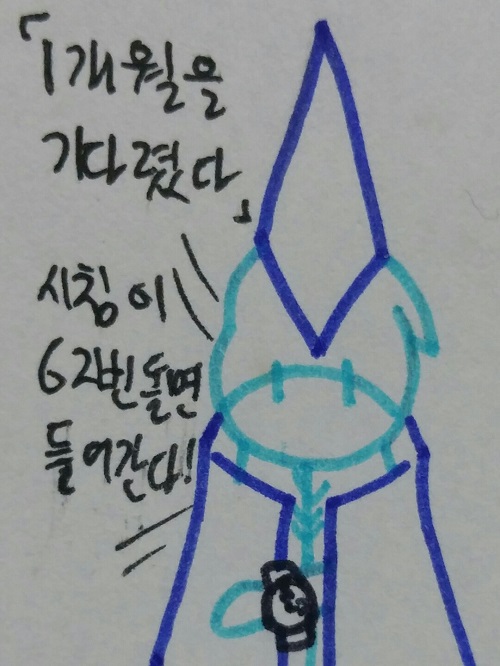 「1개월을
기다렸다」
시침이
62번 돌면
들어간다!